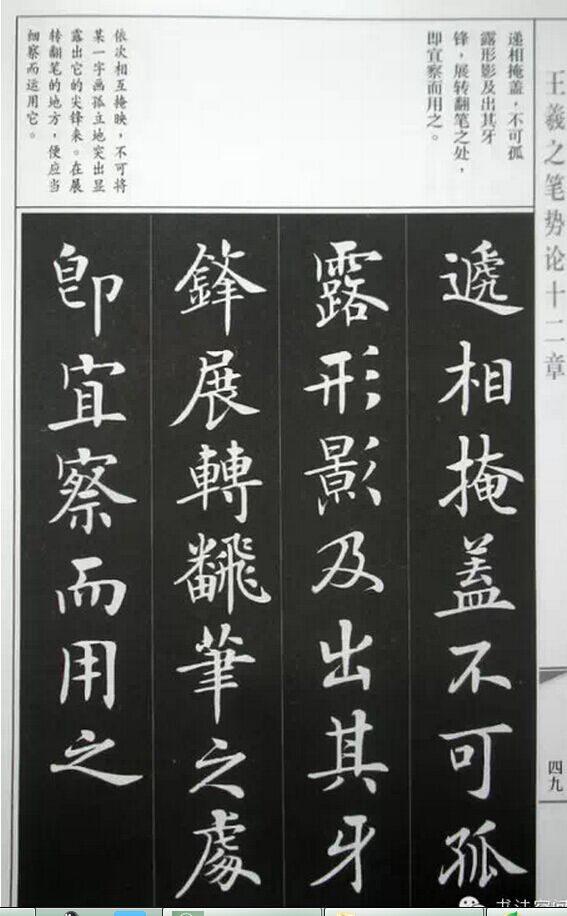 王羲之笔势论十二章
递相掩盖，不可孤
露形影及出其牙
锋，展转翻笔之处，
即宜察而用之。
依次相互掩映，不可将
某一字画孤立地突出显
露出它的尖锋来。在展
转翻笔的地方，便应当
细察而运用它。
遞相掩盖不可孤
露形影及出其牙
鋒展轉飜筆之處
即宜察而用之
四九